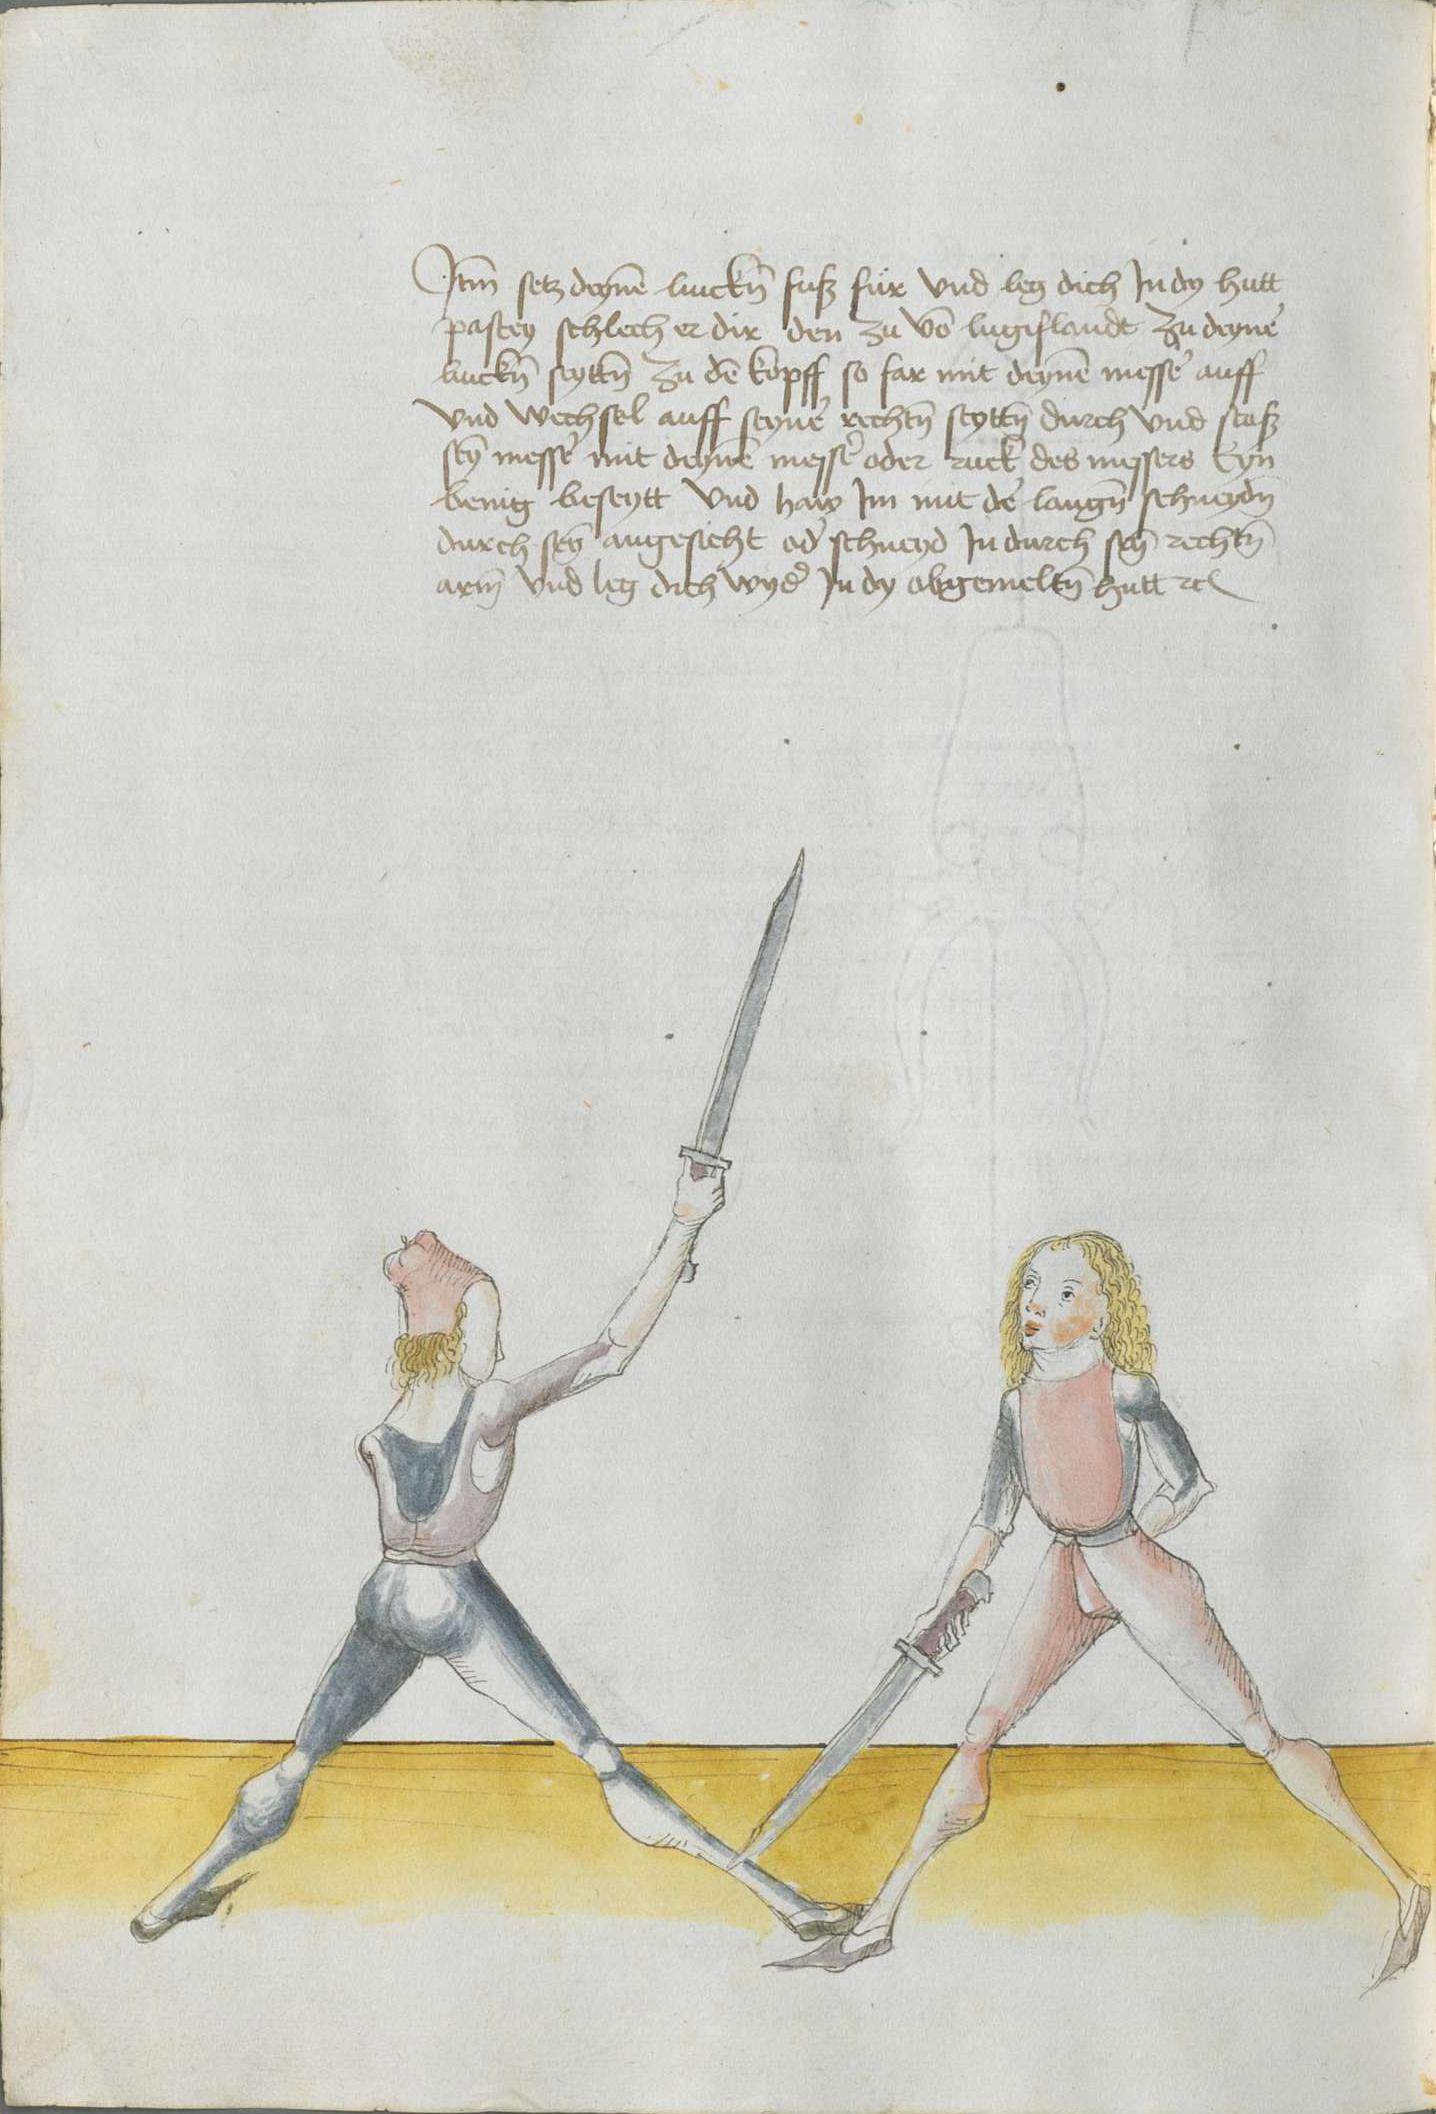 Itm̄ setz deynē linckñ fusß für vnd leg dich Jn dy hutt
pastey schlech er dir den zu vō luginslandt zu deyne᷑
linckñ seyttñ zu dē kopff so far mit deynē messe᷑ auff
vnd wechsel auff seyne᷑ rechtñ seyttñ durch vnd stoß
sey̅ messe᷑ mit deynē messe᷑ oder ruck des messers Eyn
benig beseytt vnd haw Jm mit de᷑ langñ schneydñ
durch sey̅ angesicht od᷑ schneyd Jn durch sey̅ rechtñ
arm̄ vnd leg dich wyd᷑ Jn dy obgemeltñ hutt rc